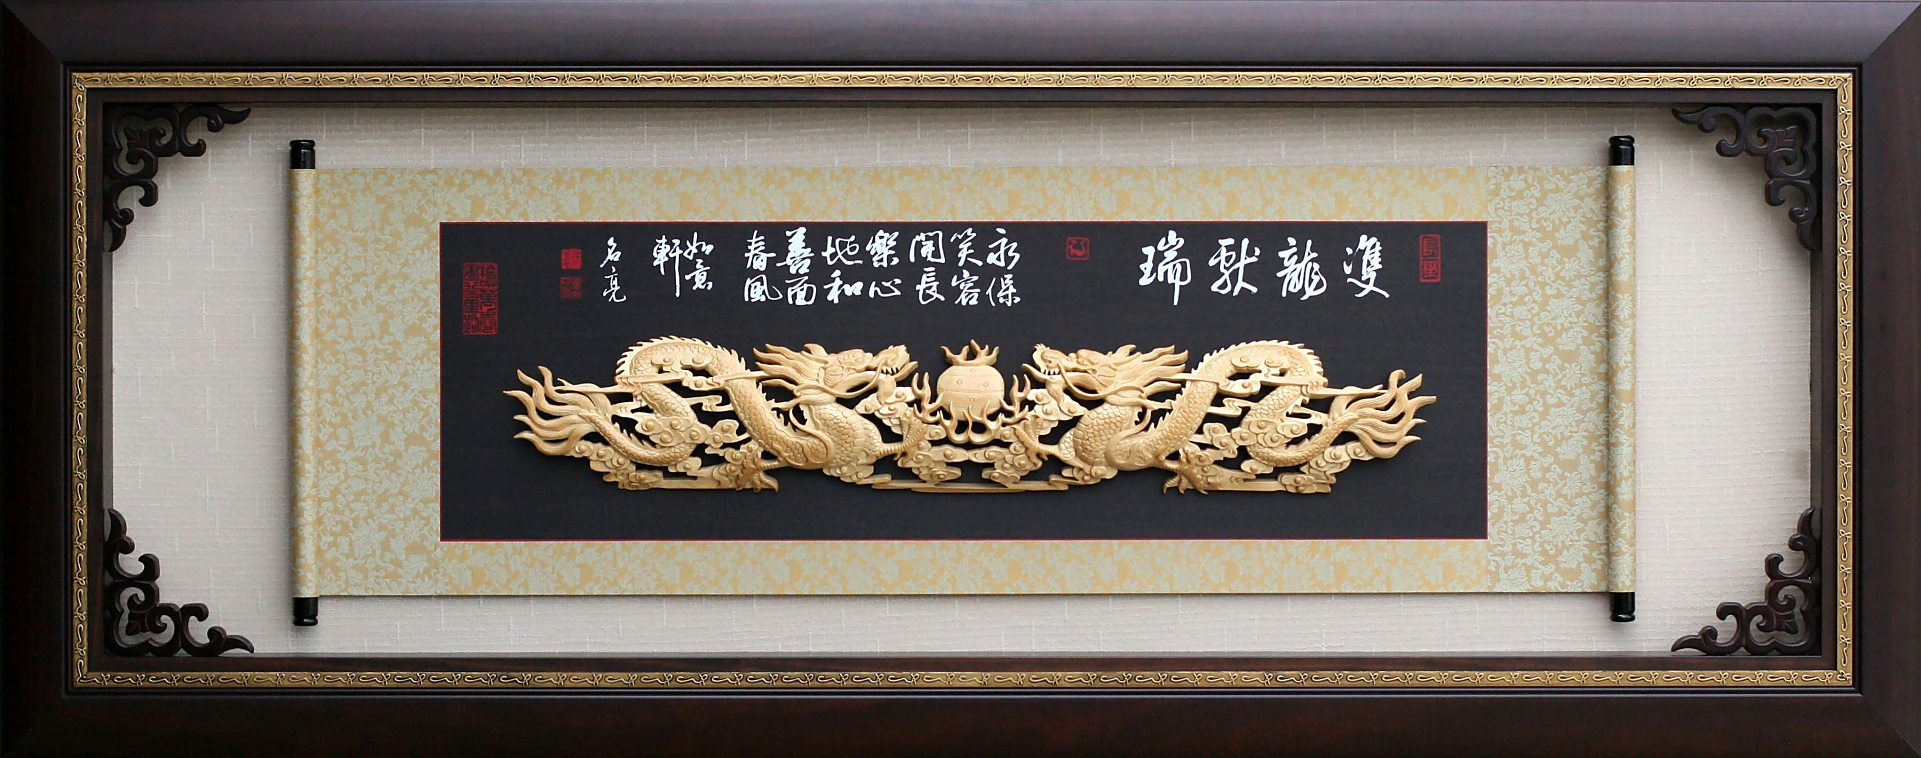 雙龍獻瑞
永保
笑容
開長
樂心
地和
善面
春風
如意
軒
名亮